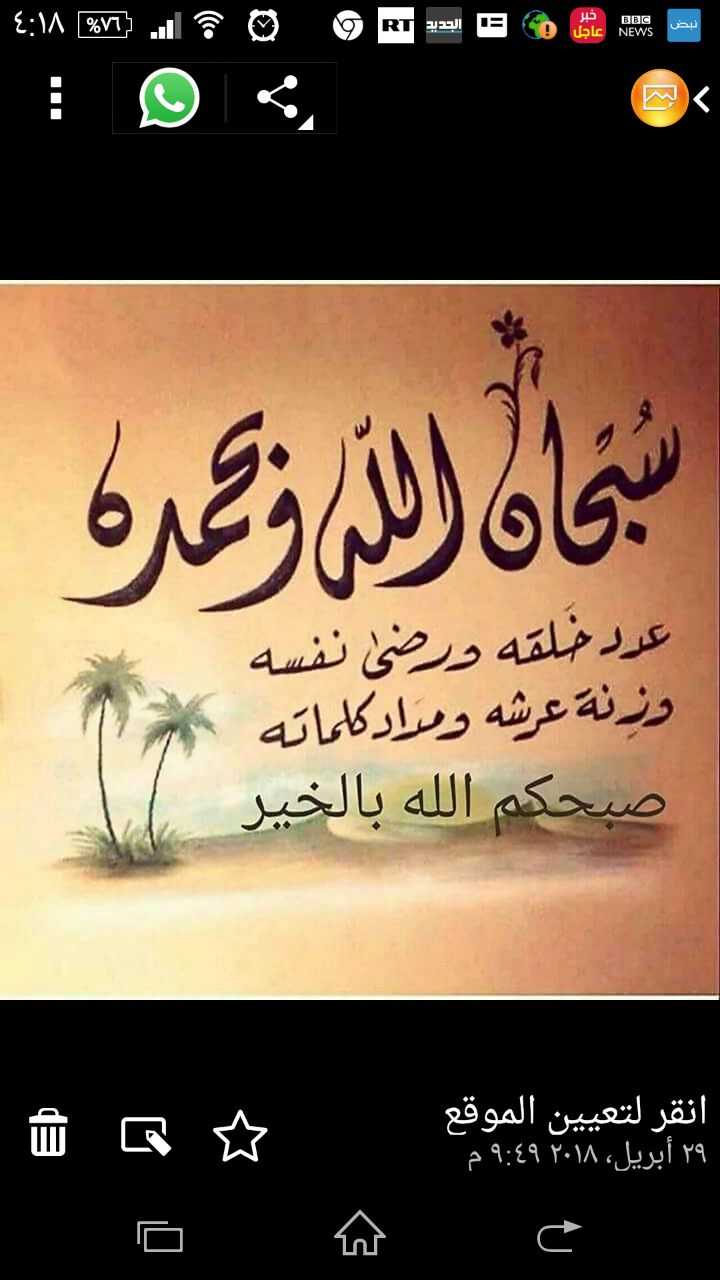 ٤:١٨ %٧٦ RT الجديد خبر عاجل BBC NEWS نبض
سُبحان اللّه وبحمده
عدد خَلقه ورضىٰ نفسه
وزِنة عرشه ومدَاد كلماته
صبحكم الله بالخير
انقر لتعيين الموقع
٢٩ أبريل، ٢٠١٨ ٩:٤٩ م